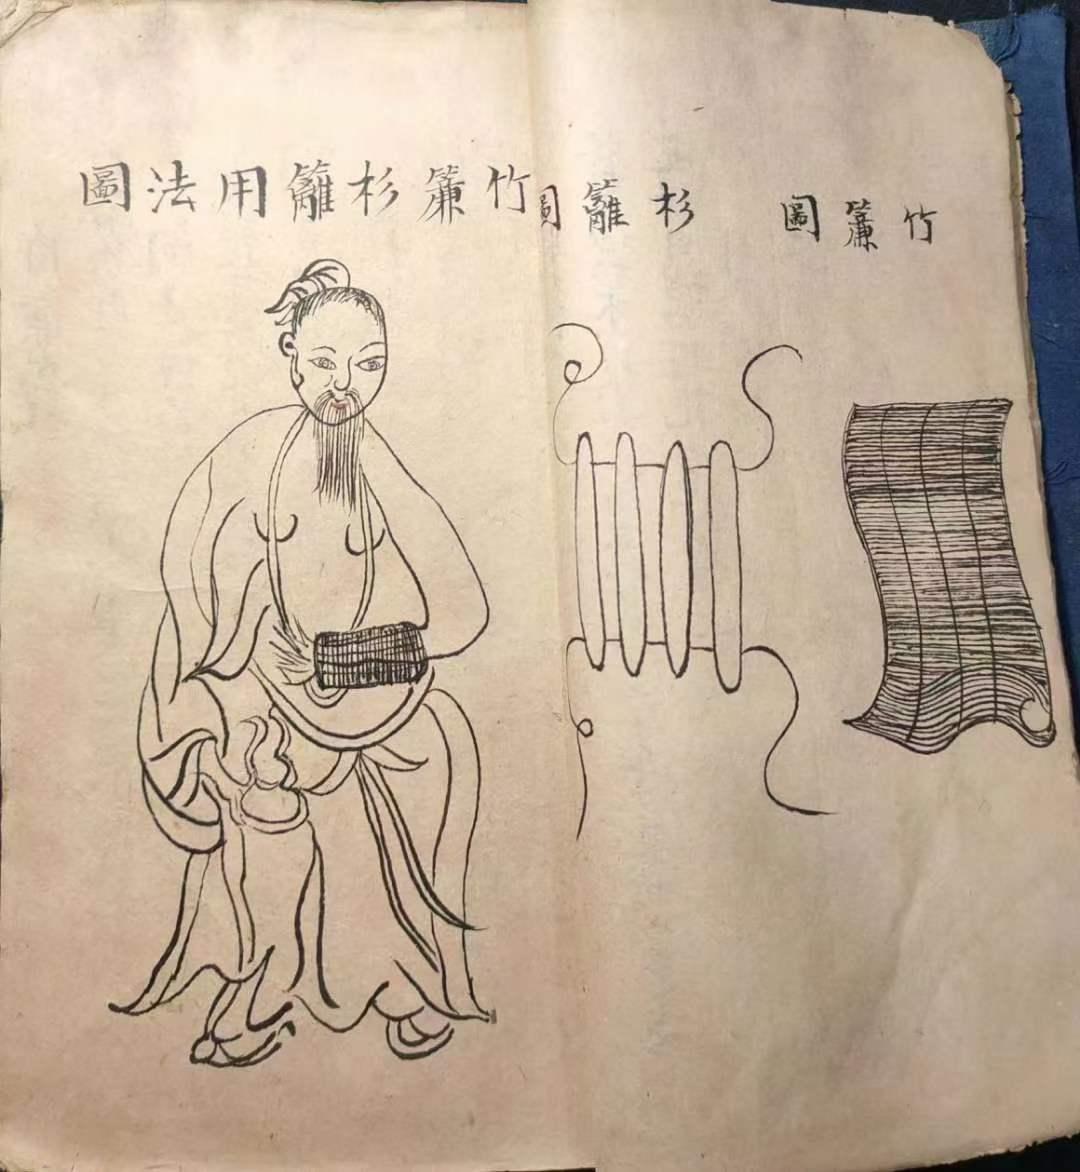 竹簾圖
杉籬圖
竹簾杉籬用法圖